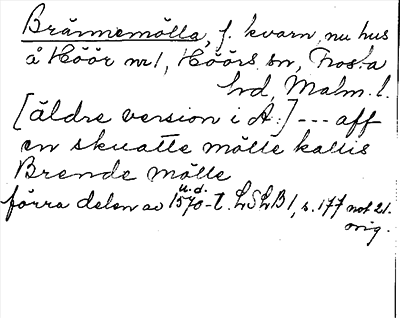 Brännemölla, f. kvarn, nu hus
å Höör nr 1, Höörs sn, Frosta
hd, Malm. l.
[äldre version i A:] --- aff
en skuatte mölle kallis
Brende mölle
u.d.
förra delen av 1570-t. LSLB 1, s. 177 not 21.
orig.